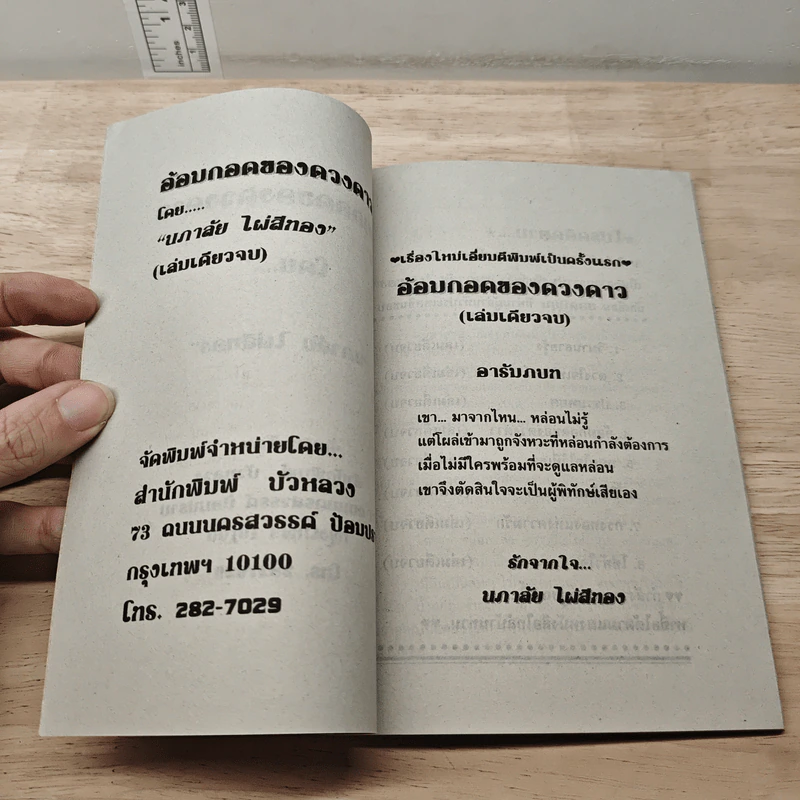 inches
1
1
2
3
อ้อมกอดของดวงดาว
โดย.....
“นภาลัย ไผ่สีทอง”
(เล่มเดียวจบ)
จัดพิมพ์จำหน่ายโดย...
สำนักพิมพ์ บัวหลวง
73 ถนนนครสวรรค์
กรุงเทพฯ 10100
โทร. 282-7029
❤เรื่องใหม่เอี่ยมตีพิมพ์เป็นครั้งแรก❤
อ้อมกอดของดวงดาว
(เล่มเดียวจบ)
อารัมภบท
เขา... มาจากไหน... หล่อนไม่รู้
แต่โผล่เข้ามาถูกจังหวะที่หล่อนกำลังต้องการ
เมื่อไม่มีใครพร้อมที่จะดูแลหล่อน
เขาจึงตัดสินใจจะเป็นผู้พิทักษ์เสียเอง
รักจากใจ...
นภาลัย ไผ่สีทอง